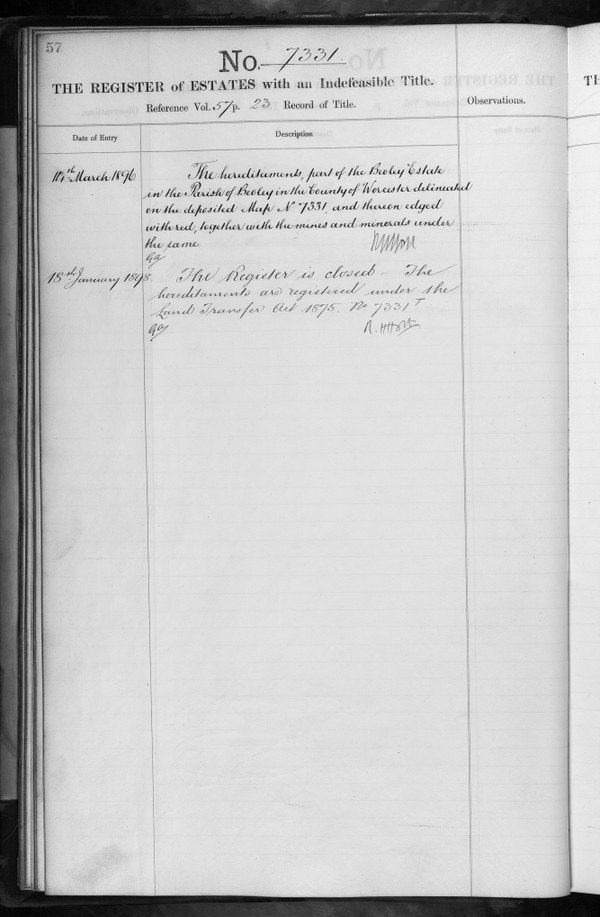 57
No. 7331.
THE REGISTER of ESTATES with an Indefeasible Title.
Reference Vol. 57 p. 23 Record of Title.
Observations.
TH
Date of Entry
Description
March 1896
The hereditaments, part of the Beoley Estate
in the Parish of Beoley in the County of Worcester delineated
on the deposited Map No 7331, and thereon edged
with red, together with the mines and minerals under
the same
18th January 1898.
The Register is closed – The
hereditaments are registered under the
Land Transfer Act 1875. No 7331 T.